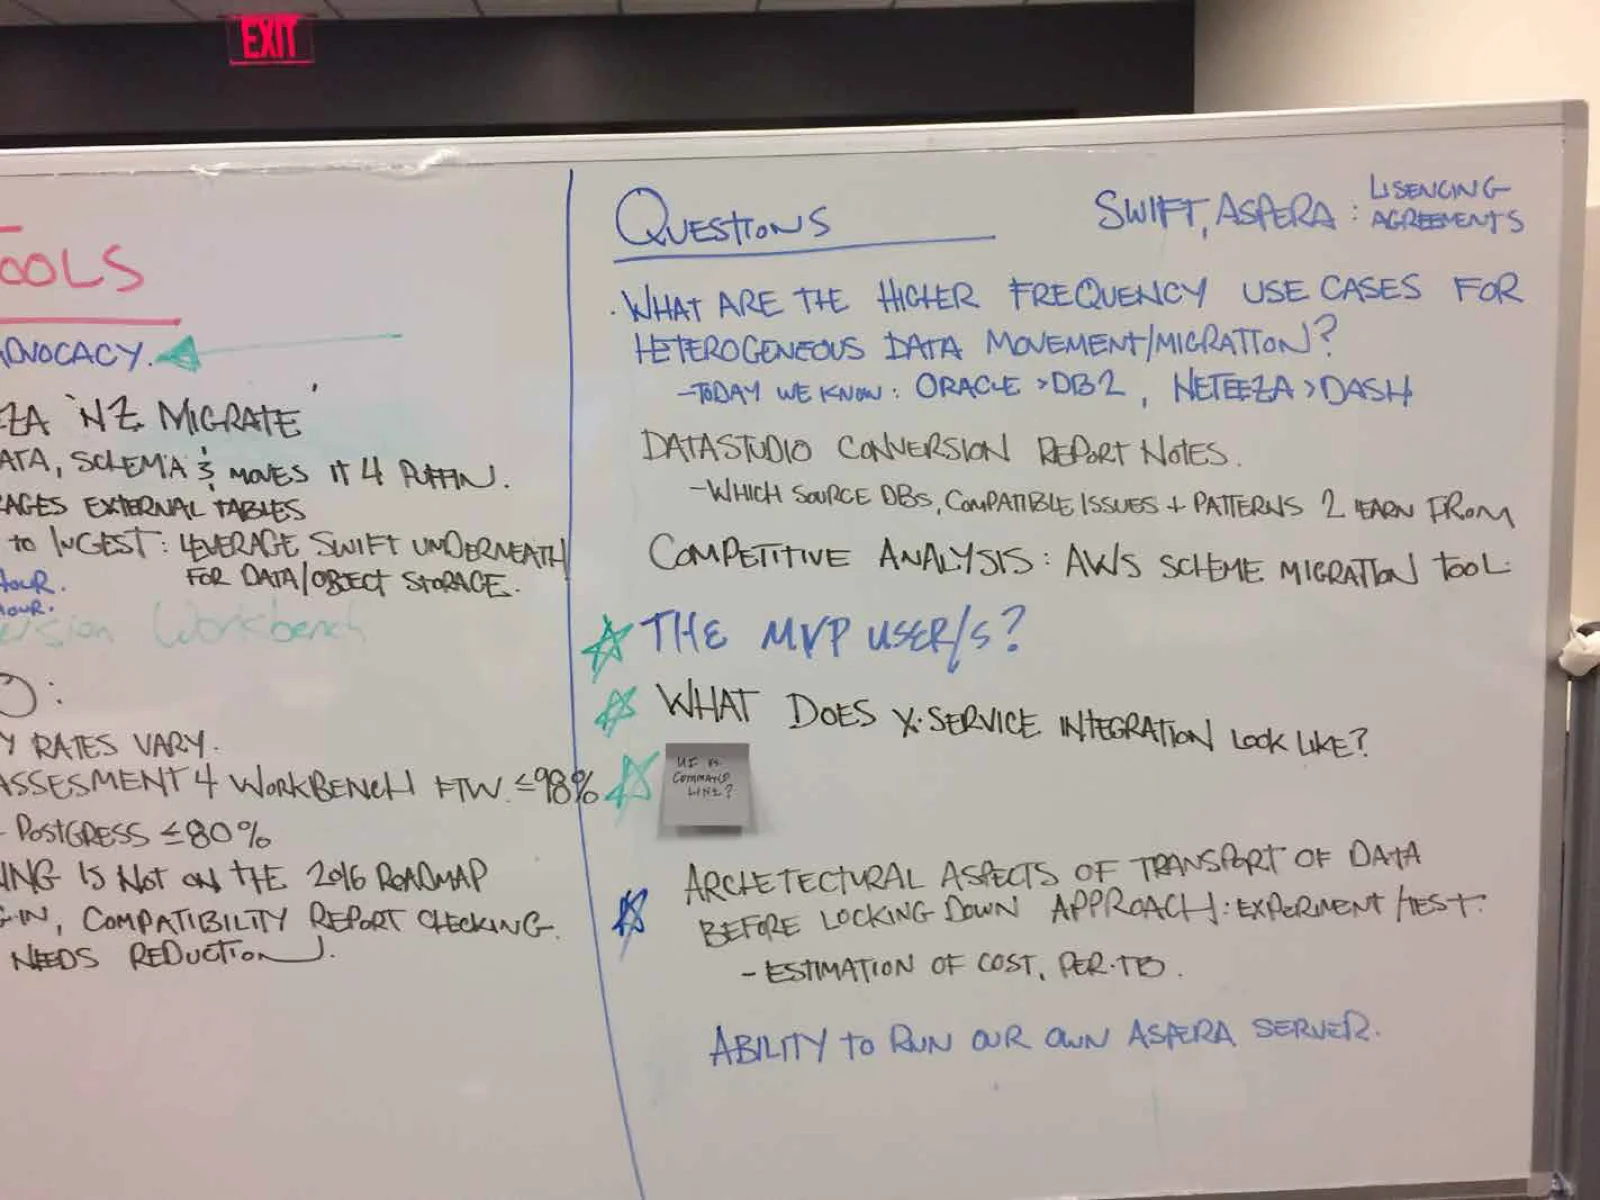 EXIT
OOLS
ADVOCACY.
ZA 'NZ MIGRATE'
ATA, SCHEMA & MOVES IT 4 PUFFIN.
AGES EXTERNAL TABLES
TO INGEST: LEVERAGE SWIFT UNDERNEATH
FOR DATA/OBJECT STORAGE.
HOUR.
HOUR.
Workbench
Y RATES VARY.
ASSESMENT 4 WORKBENCH FTW. ≤98%
- POSTGRESS ≤80%
ING IS NOT ON THE 2016 ROADMAP
G-IN, COMPATIBILITY REPORT CHECKING.
NEEDS REDUCTION.
QUESTIONS
SWIFT, ASPERA : LISENCING
AGREEMENTS
· WHAT ARE THE HIGHER FREQUENCY USE CASES FOR
HETEROGENEOUS DATA MOVEMENT/MIGRATION?
- TODAY WE KNOW: ORACLE > DB2, NETEEZA > DASH
DATASTUDIO CONVERSION REPORT NOTES.
- WHICH SOURCE DBS, COMPATIBLE ISSUES + PATTERNS 2 LEARN FROM
COMPETITIVE ANALYSIS: AWS SCHEME MIGRATION TOOL.
THE MVP USER/S?
WHAT DOES X-SERVICE INTEGRATION LOOK LIKE?
UI vs.
COMMAND
LINE?
ARCHETECTURAL ASPECTS OF TRANSPORT OF DATA
BEFORE LOCKING DOWN APPROACH: EXPERIMENT/TEST.
- ESTIMATION OF COST, PER TB.
ABILITY TO RUN OUR OWN ASPERA SERVER.